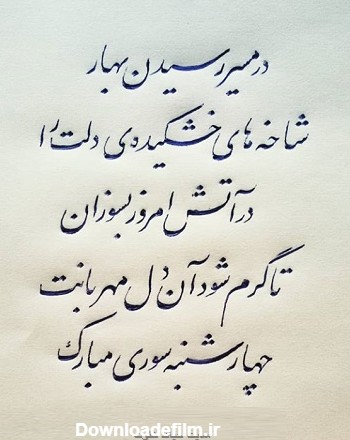 در مسیر رسیدن بهار
شاخه های خشکیده ی دلت را
در آتش امروز بسوزان
تا گرم شود آن دل مهربانت
چهارشنبه سوری مبارک
Downloadefilm.ir